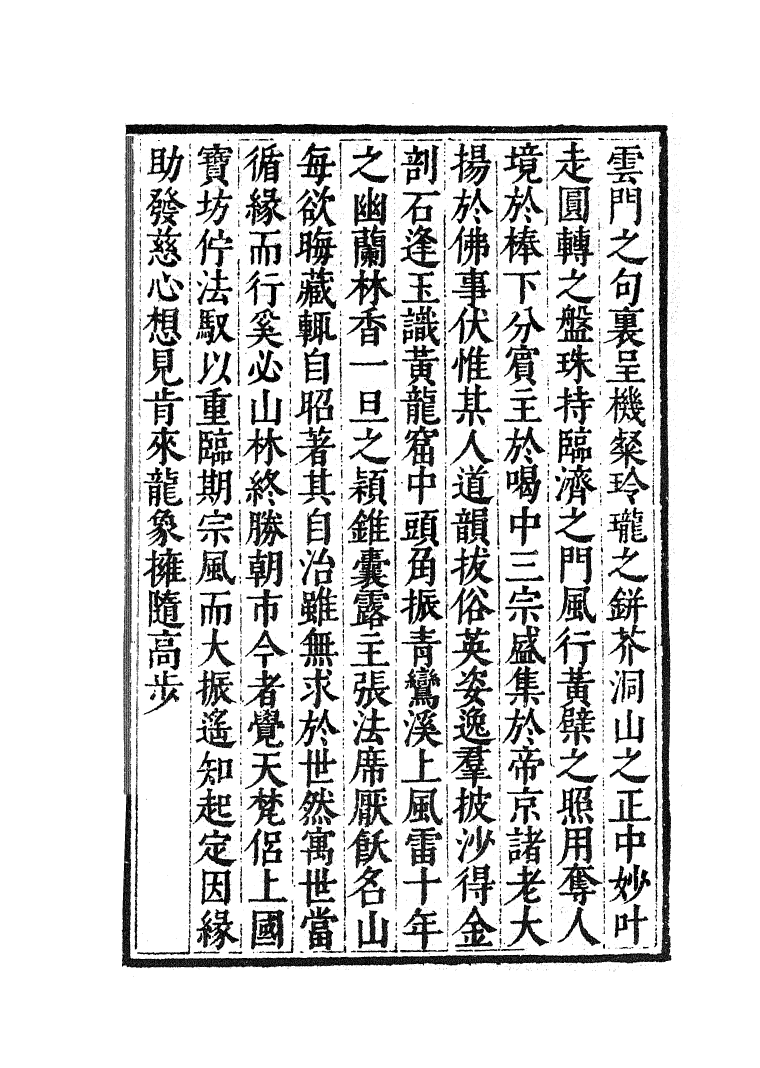 雲門之句裏呈機粲玲瓏之缾芥洞山之正中妙叶
走圓轉之盤珠持臨濟之門風行黃檗之照用奪人
境於棒下分賔主於喝中三宗盛集於帝京諸老大
揚於佛事伏惟某人道韻拔俗英姿逸羣披沙得金
剖石逢玉識黃龍窟中頭角振青鸞溪上風雷十年
之幽蘭林香一旦之穎錐囊露主張法席厭飫名山
每欲晦藏輒自昭著其自治雖無求於世然寓世當
循緣而行奚必山林終勝朝市今者覺天梵侶上國
寶坊佇法馭以重臨期宗風而大振遙知起定因緣
助發慈心想見肯來龍象擁隨高步